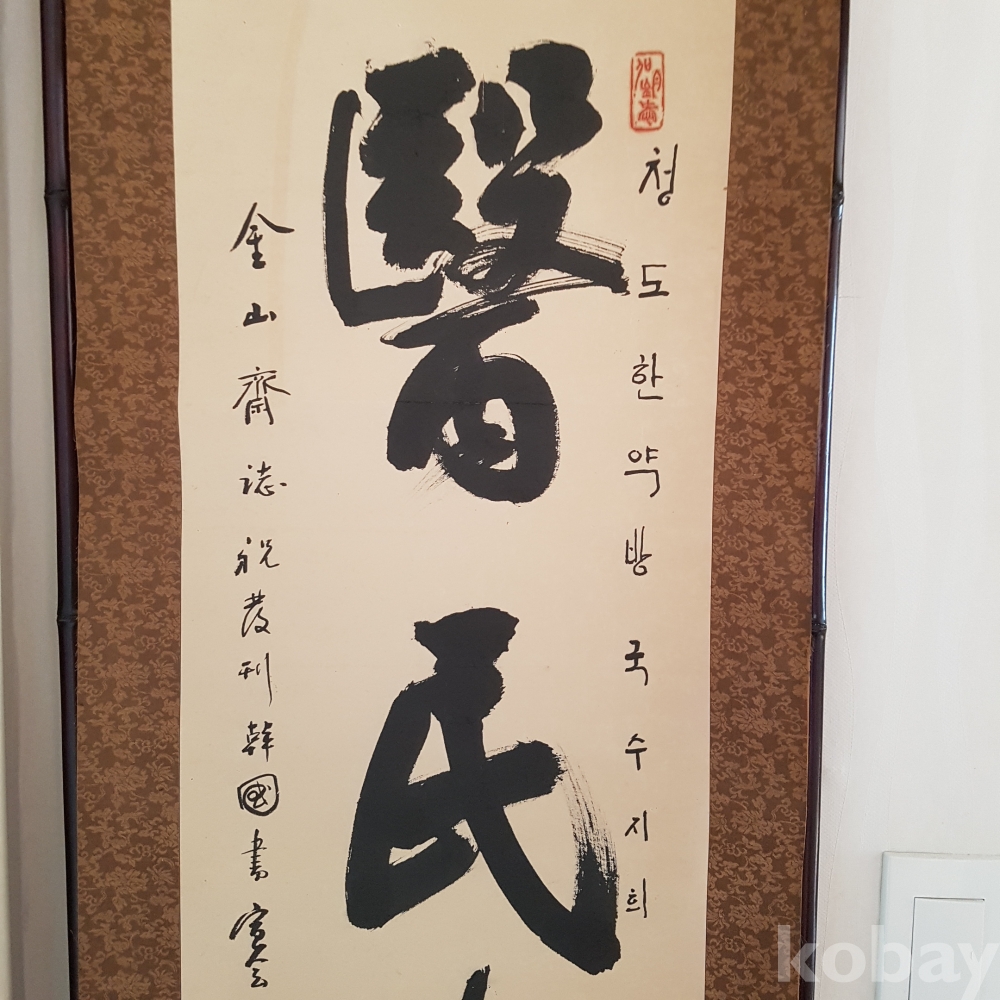 청도한약방국수지희
醫民
金山齋誌祝發刊韓國書
kobay